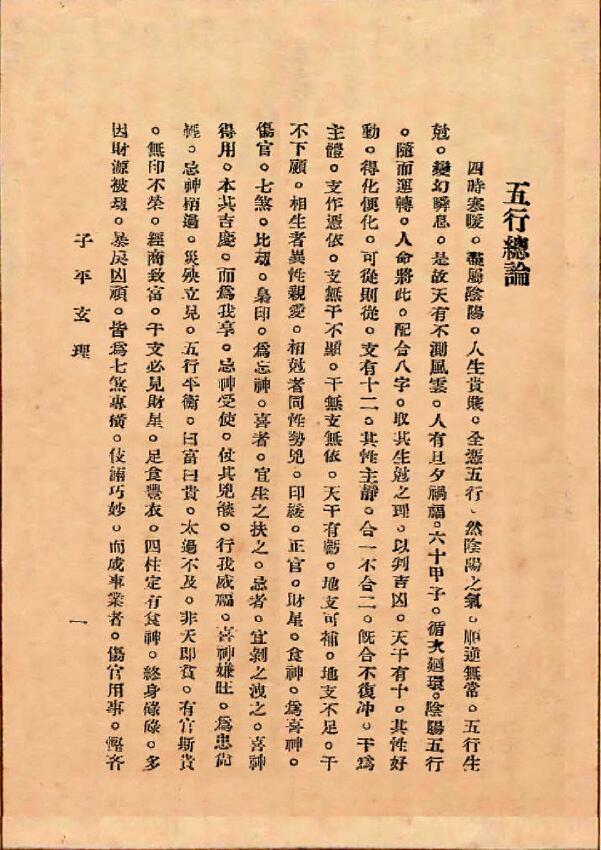 五行總論
四時寒暖。盡屬陰陽。人生貴賤。全憑五行、然陰陽之氣。順逆無常。五行生
尅。變幻瞬息。是故天有不測風雲。人有旦夕禍福。六十甲子。循次廻環。陰陽五行
。隨而運轉。人命將此。配合八字。取其生尅之理。以判吉凶。天干有十。其性好
動。得化便化。可從則從。支有十二。其性主靜。合一不合二。旣合不復冲。干爲
主體。支作憑依。支無干不顯。干無支無依。天干有虧。地支可補。地支不足。干
不下顧。相生者異性親愛。相尅者同性勢兇。印綬。正官。財星。食神。爲喜神。
傷官。七煞。比刼。梟印。爲忌神。喜者。宜生之扶之。忌者。宜剝之洩之。喜神
得用。本其吉慶。而爲我享。忌神受使。仗其兇燄。行我威福。喜神嫌旺。爲患尙
輕。忌神稍過。災殃立見。五行平衡。曰富曰貴。太過不及。非夭即貧。有官斯貴
。無印不榮。經商致富。干支必見財星。足食豐衣。四柱定有食神。終身碌碌。多
因財源被刼。暴戾凶頑。皆爲七煞專橫。伎倆巧妙。而成事業者。傷官用事。慳吝
子平玄理
一